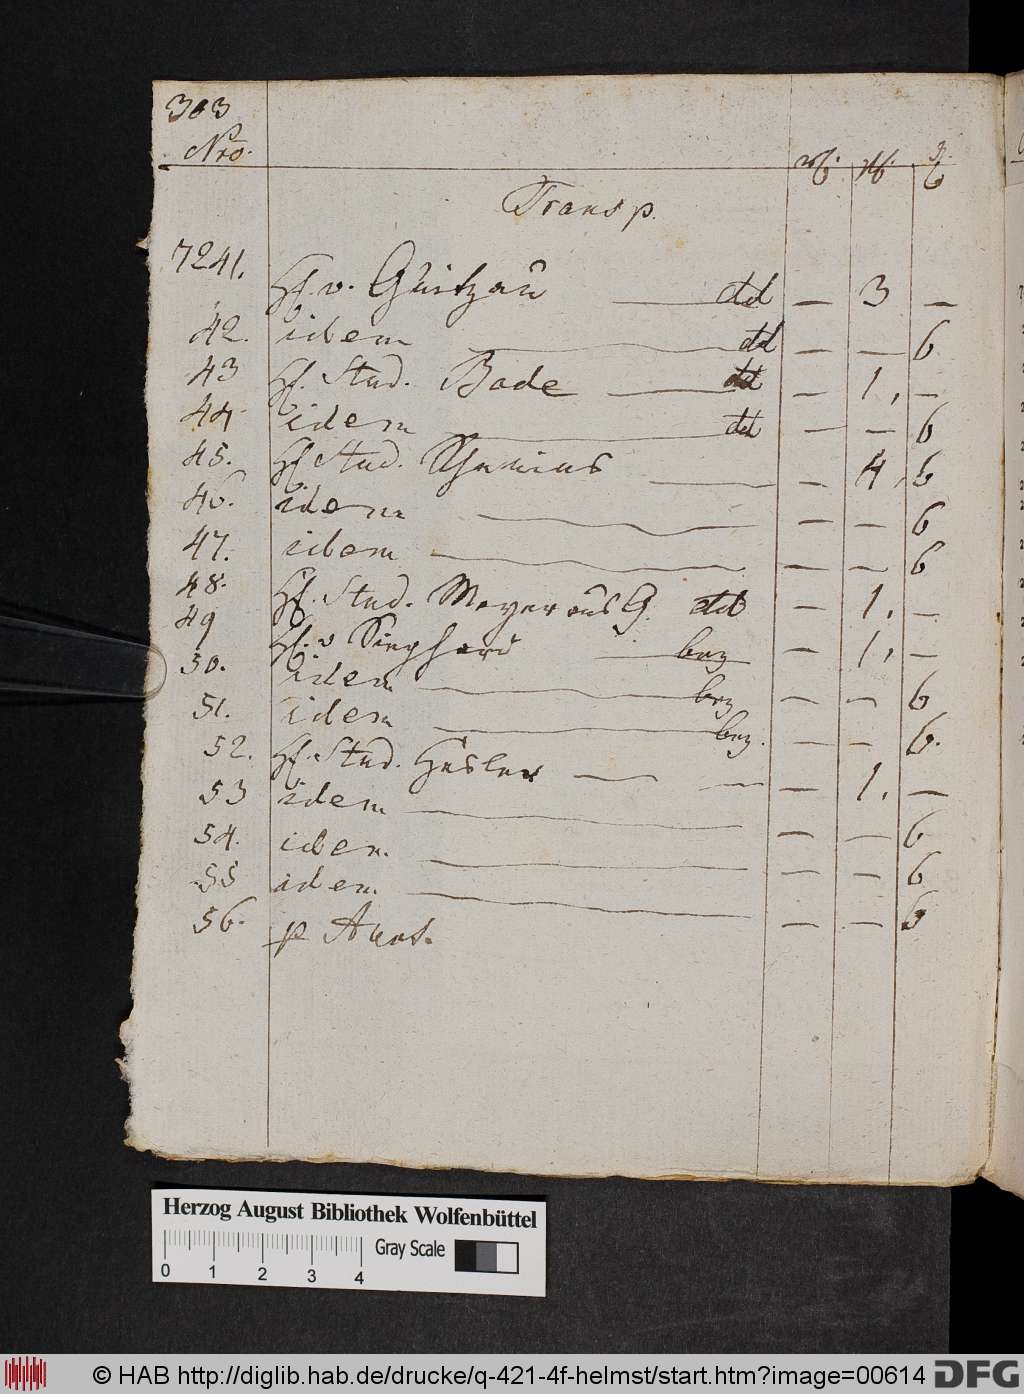 303
Nro.
Transp.
7241. H. v. Gützau dd — 3 —
42. idem dd — — 6
43 H. Stud. Bode dd — 1, —
44 idem dd — — 6
45. H. Stud. — 4, 6
46. idem — — 6
47. idem — — 6
48. H. Stud. Meyer aus G. dd — 1, —
49 H. v. bez — 1, —
50. idem bez — — 6
51. idem bez. — — 6.
52. H. Stud. — 1, —
53 idem — — 6
54. idem. — — 6
55 idem — — 6
56. p Auct.
Herzog August Bibliothek Wolfenbüttel
Gray Scale
0 1 2 3 4
© HAB http://diglib.hab.de/drucke/q-421-4f-helmst/start.htm?image=00614 DFG